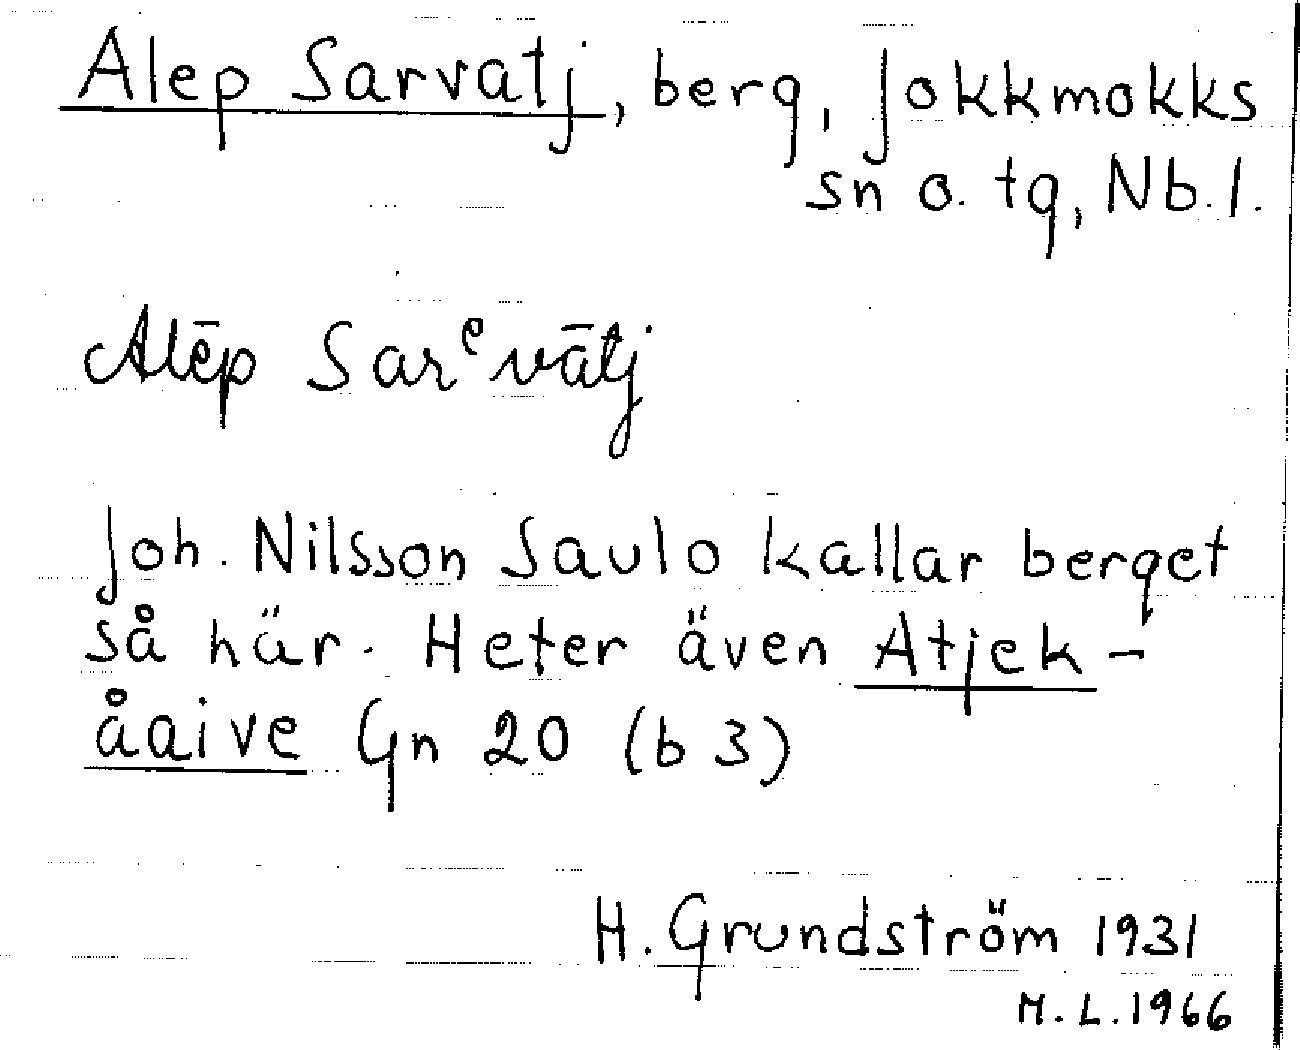 Alep Sarvatj, berg, Jokkmokks
sn o. tg, Nb. l.
Alēp Sarᵉvātj
Joh. Nilsson Saulo kallar berget
så här. Heter även Atjek-
åaive Gn 20 (b 3)
H. Grundström 1931
M. L. 1966